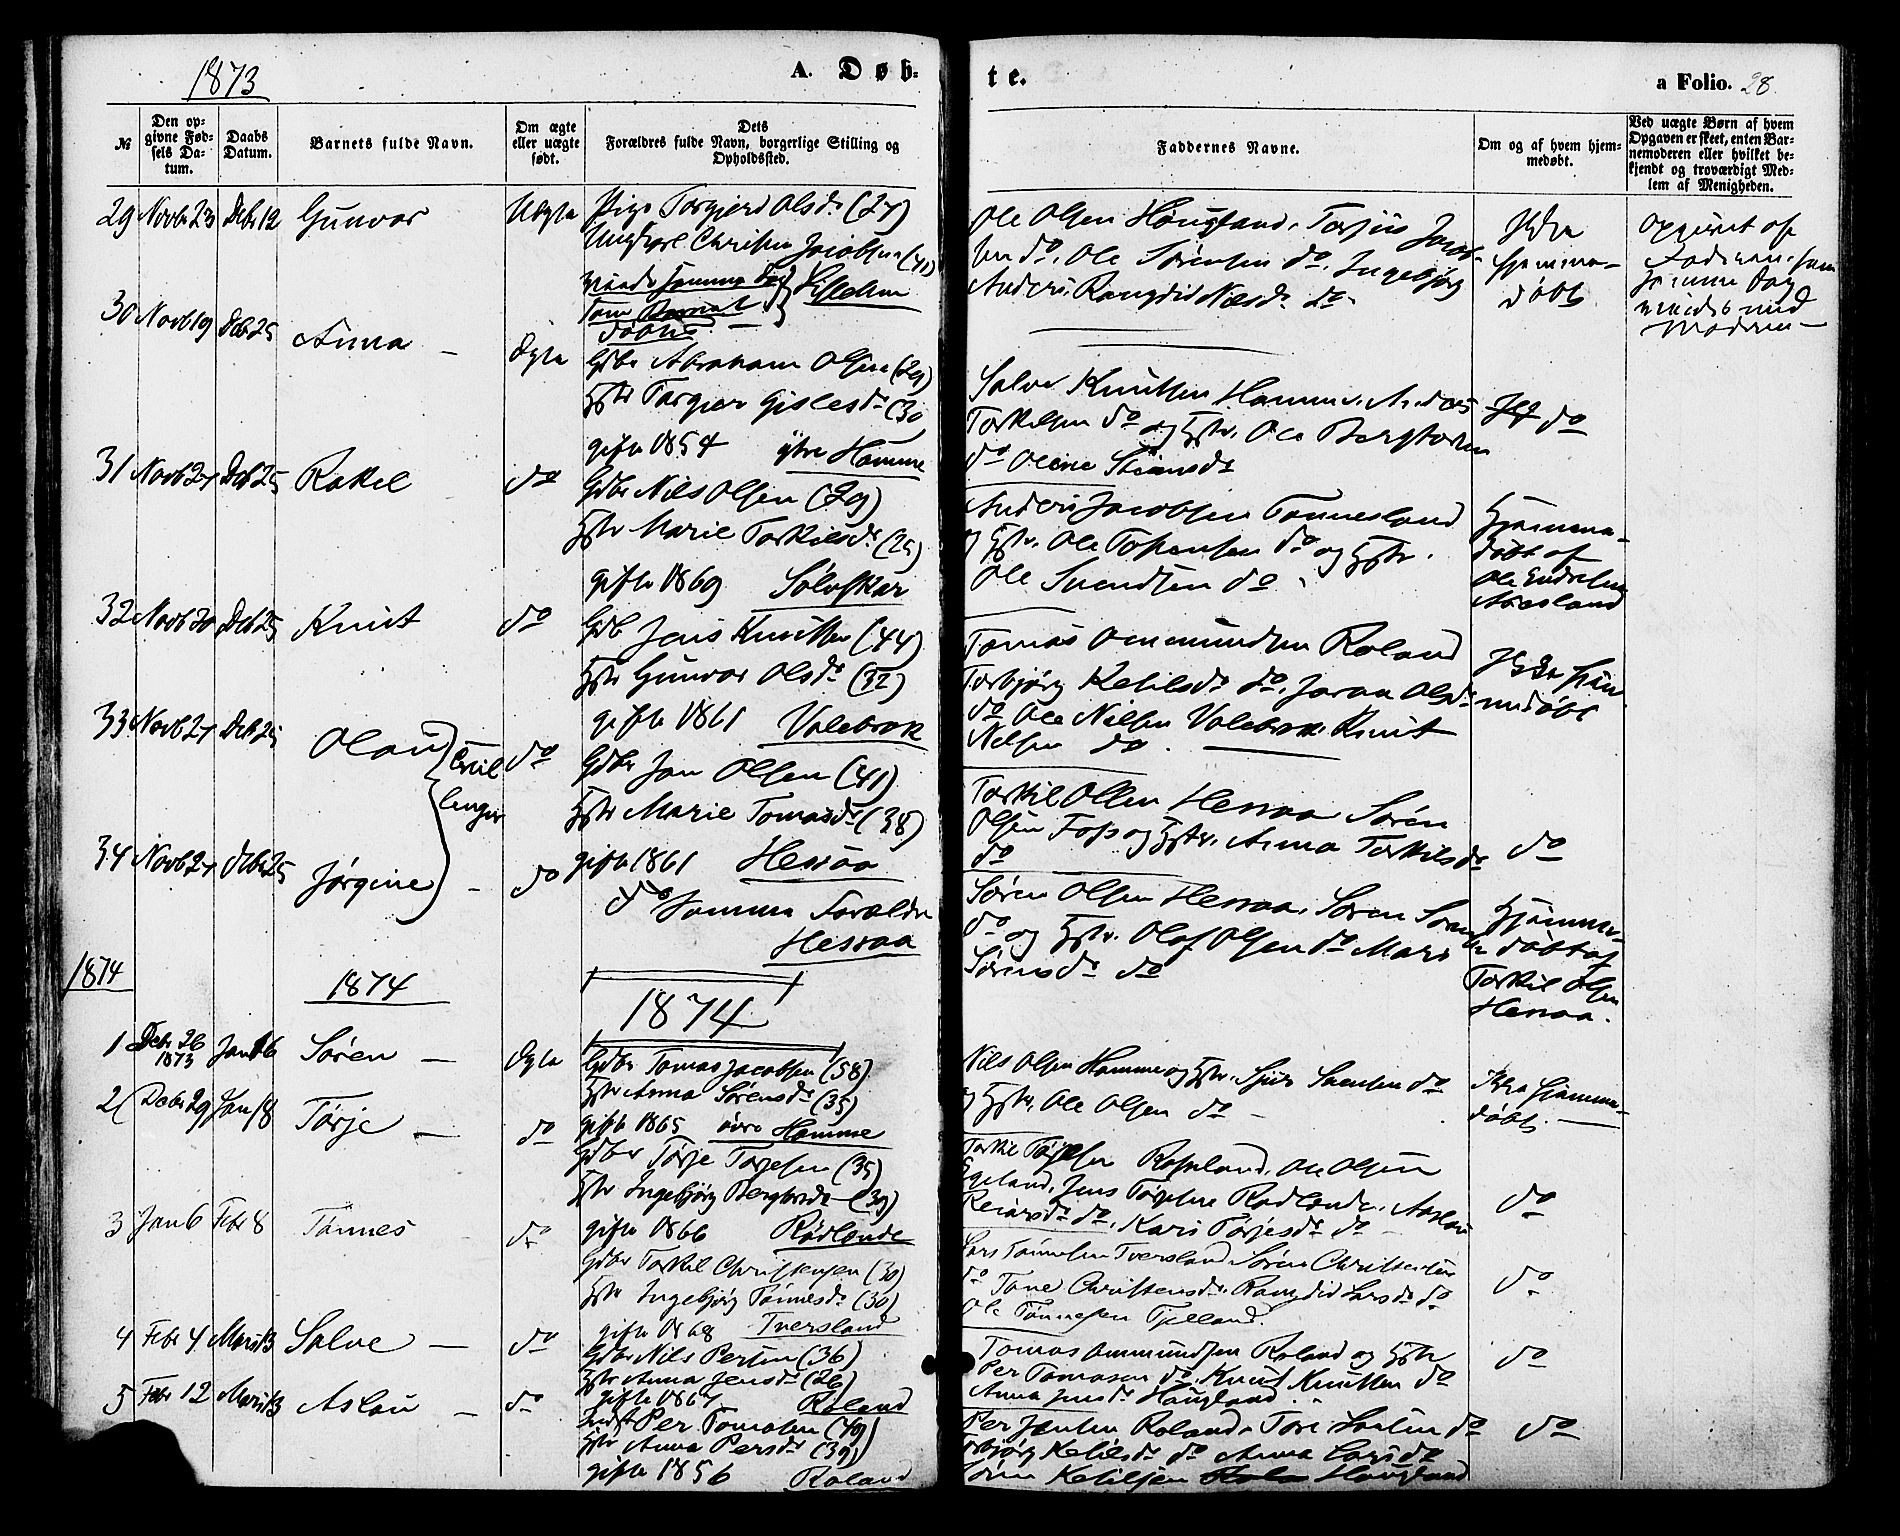 1873
A. Døb-
te.
a Folio. 28.
№
Den op-
givne Fød-
sels Da-
tum.
Daabs
Datum.
Barnets fulde Navn.
Om ægte
eller uægte
født.
Dets
Forældres fulde Navn, borgerlige Stilling og
Opholdssted.
Faddernes Navne.
Om og af hvem hjem-
medøbt.
Ved uægte Børn af hvem
Opgaven er skeet, enten Bar-
nemoderen eller hvilket be-
kjendt og troværdigt Med-
lem af Menigheden.
29 Novbr 23 Debr 12 Gunvor Uægte Pige Torgjerd Olsdr (27)
Ungkarl Christen Jacobsen (41)
samme
døbtes
Ole Olsen Hougland, Torjus Jacob-
sen do, Ole Sørensen do, Ingebjørg
Anders, Rangdid Nilsdr do
Ikke
hjemme-
døbt
opgivet af
Faderen, som
samme Dag
viedes med
Moderen —
30 Novb 19 Deb 25 Anna — Ægte Gdbr Abraham Olsen (29)
Hstr Torgier Gislesdr (30
gift 1854 øvre Homme
Salve Knutsen Homme, Anders
Torkilsen do og Hstr, Ole Bergtorsen
do Olene Stiansdr
do
31 Novb 27 Deb 25 Rakel do Gdbr Nils Olsen (29)
Hstr Marie Torkilsdr (25)
gift 1869 Sølvskar
Anders Jacobsen Tonnesland
og Hstr, Ole Tostensen do og Hstr.
Ole Svendsen do
Hjemme-
døbt af
Ole Endresen
32 Novb 30 Deb 25 Knut do Gdb Jens Knutsen (44)
Hstr Gunvor Olsdr (32)
gift 1861 Valebrok
Tomas Ommundsen Roland
Torbjørg Ketilsdr do, Joran Olsdr
do Ole Nilsen Valebrok, Knut
Nilsen do.
Ikke hjem
medøbt
33 Novb 27 Deb 25 Olau Tvil
linger
do Gdbr Jon Olsen (41)
Hstr Marie Tomasdr (38)
gift 1861 Hesaaa
Torkil Olsen Hesaaa Søren
Olsen Foss og Hstr, Anna Torkilsdr
do
do
34 Novb 27 Debr 25 Jørgine — do do Samme Forældre
Hesaaa
Søren Olsen Hesaaa, Søren Søren
do og Hstr. Olaf Olsen do Mari
Sørensdr do
Hjemme-
døbt af
Torkil Olsen
Hesaaa.
1874
1874
1874
1 Debr 26
1873 Jan 6 Søren — Ægte Gdbr Tomas Jacobsen (58)
Hstr Anna Sørensdr (35)
gift 1865 øvre Homme
Nils Olsen Homme og Hstr, Sjur Svensen do
og Hstr, Ole Olsen do —
Ikke hjemme-
døbt. —
2 Debr 29 Jan 18 Tørje — do Gdbr Tørje Torjesen (35)
Hstr Ingebjørg Bergtorsdr (39)
gift 1866 Rødlende
Torkil Rosseland, Ole Olsen
Egeland, Jens Rødlende, Aslau
Reiarsdr do, Kari Torjesdr do —
do
3 Jan 6 Febr 8 Tønnes do Gdbr Torkil Christensen (30)
Hstr Ingebjørg Tønnesdr (30)
gift 1868 Tversland
Lars Tønnesen Tversland, Søren Christensen
do Tone Christensdr, Rangdid Larsdr do
Ole Tønnesen Tjelland.
do
4 Febr 4 Salve — do Gdbr Nils Persen (36)
Hstr Anna Jensdr (26)
gift 1867 Roland
Tomas Ommundsen Roland og Hstr
Per Tomasen do, Knut Knutsen do
Anna Jensdr Hougland.
do
5 Febr 12 Aslau — do Per Tomasen (49)
Hstr Anna Persdr (39)
gift 1856 Roland
Per Jensen Roland, Tore Larsen do
Torbjørg Ketilsdr do Anna Larsdr do
Søren Ketilsen Hougland
do